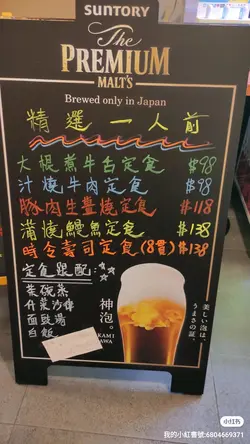 SUNTORY
The
PREMIUM
MALT'S
Brewed only in Japan
精選一人前
大根煮牛舌定食 $98
汁燒牛肉定食 $98
豚肉生薑燒定食 $118
蒲燒鰻魚定食 $138
時令壽司定食(8貫) $138
定食跟配:
茶碗蒸
什菜沙律
麵豉湯
白飯
神泡。
美しい泡は、
うまさの証。
小红书
我的小紅書號:6804669371